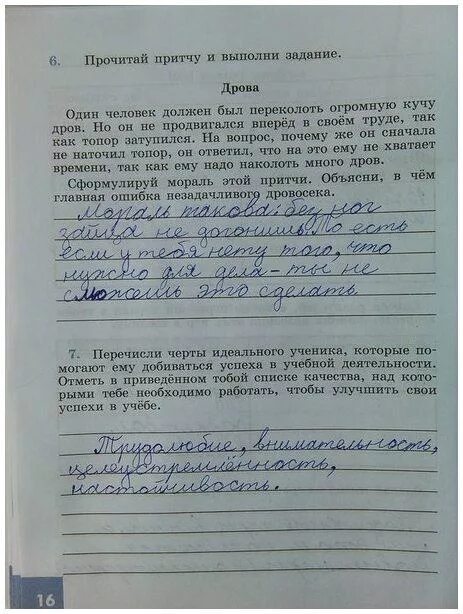 6. Прочитай притчу и выполни задание.
Дрова
Один человек должен был переколоть огромную кучу
дров. Но он не продвигался вперёд в своём труде, так
как топор затупился. На вопрос, почему же он сначала
не наточил топор, он ответил, что на это ему не хватает
времени, так как ему надо наколоть много дров.
Сформулируй мораль этой притчи. Объясни, в чём
главная ошибка незадачливого дровосека.
Мораль такова: без ног
зайца не догонишь. То есть
если у тебя нету того, что
нужно для дела - ты не
сможешь это сделать
7. Перечисли черты идеального ученика, которые по-
могают ему добиваться успеха в учебной деятельности.
Отметь в приведённом тобой списке качества, над кото-
рыми тебе необходимо работать, чтобы улучшить свои
успехи в учёбе.
Трудолюбие, внимательность,
целеустремлённость,
настойчивость.
16